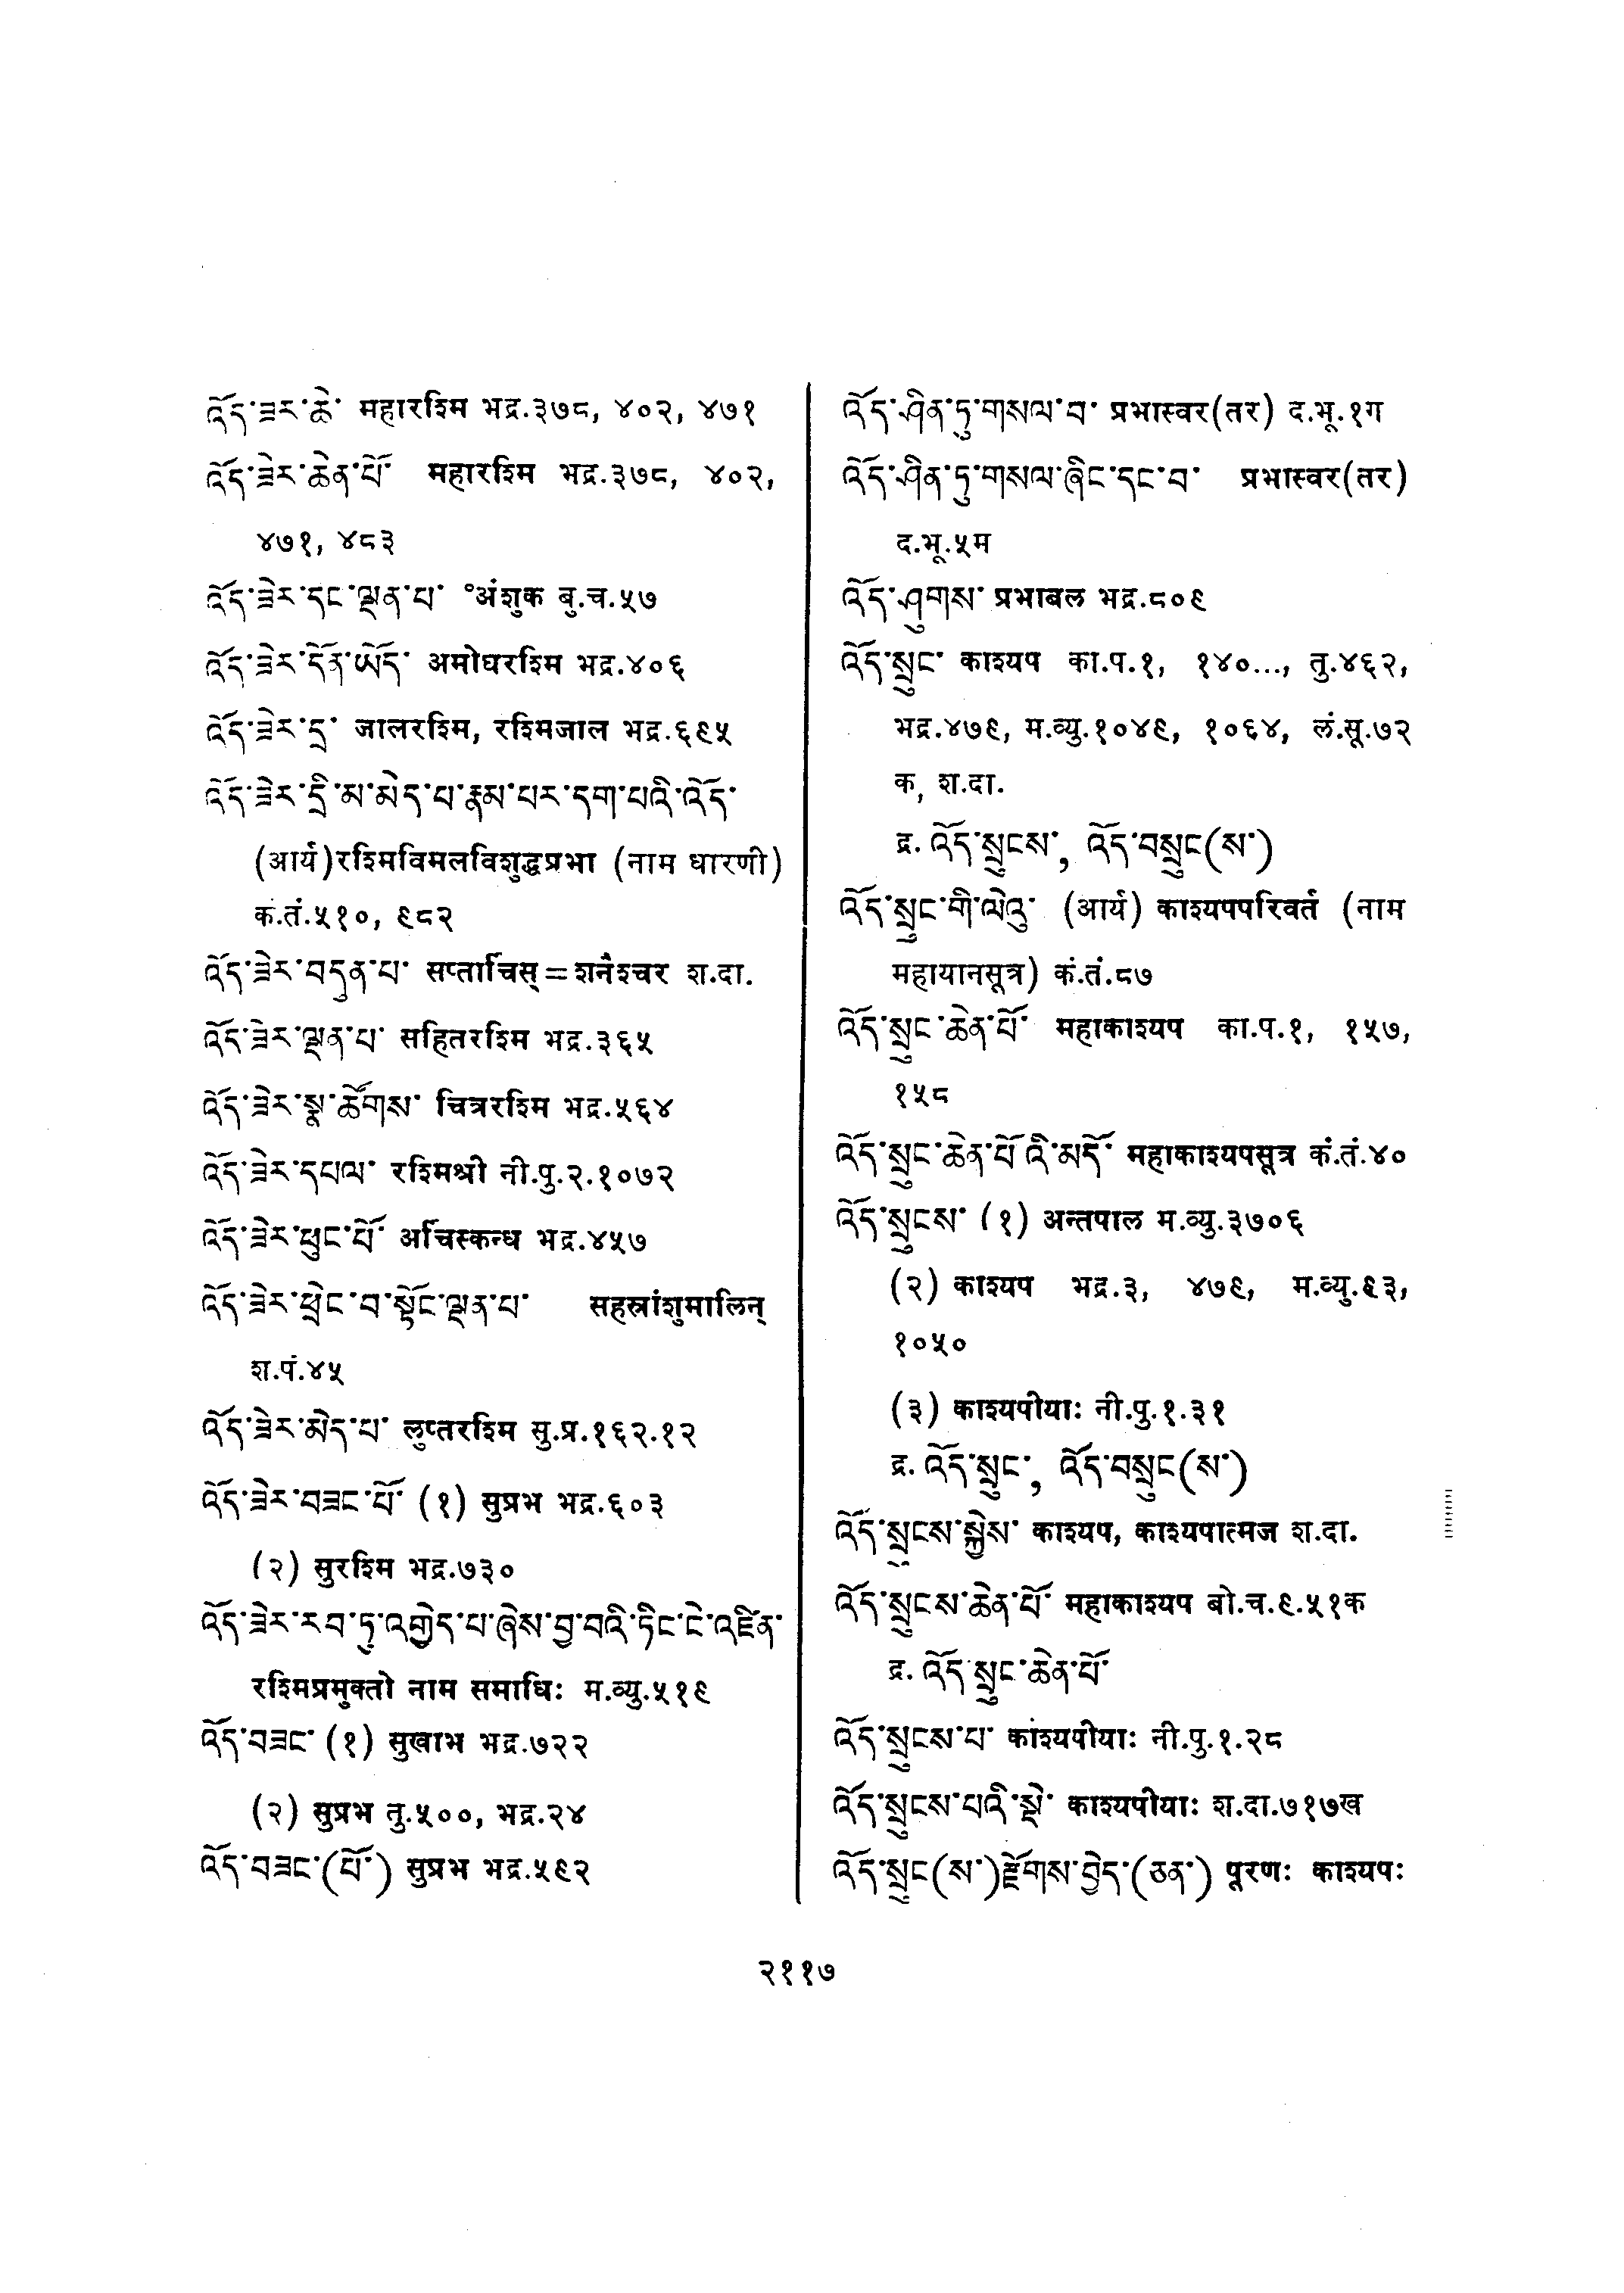 འོད་ཟར་ཆེ་ महारश्मि भद्र.३७८, ४०२, ४७१
འོད་ཟེར་ཆེན་པོ་ महारश्मि भद्र.३७८, ४०२,
४७१, ४८३
འོད་ཟེར་དང་ལྡན་པ་ °अंशुक बु.च.५७
འོད་ཟེར་དོན་ཡོད་ अमोघरश्मि भद्र.४०६
འོད་ཟེར་དྲ་ जालरश्मि, रश्मिजाल भद्र.६९५
འོད་ཟེར་དྲི་མ་མེད་པ་རྣམ་པར་དག་པའི་འོད་
(आर्य)रश्मिविमलविशुद्धप्रभा (नाम धारणी)
कं.तं.५१०, ९८२
འོད་ཟེར་བདུན་པ་ सप्तार्चिस्=शनैश्चर श.दा.
འོད་ཟེར་ལྡན་པ་ सहितरश्मि भद्र.३६५
འོད་ཟེར་སྣ་ཚོགས་ चित्ररश्मि भद्र.५६४
འོད་ཟེར་དཔལ་ रश्मिश्री नी.पु.२.१०७२
འོད་ཟེར་ཕུང་པོ་ अर्चिस्कन्ध भद्र.४५७
འོད་ཟེར་ཕྲེང་བ་སྟོང་ལྡན་པ་ सहस्रांशुमालिन्
श.पं.४५
འོད་ཟེར་མེད་པ་ लुप्तरश्मि सु.प्र.१६२.१२
འོད་ཟེར་བཟང་པོ་ (१) सुप्रभ भद्र.६०३
(२) सुरश्मि भद्र.७३०
འོད་ཟེར་རབ་ཏུ་འགྱེད་པ་ཞེས་བྱ་བའི་ཏིང་ངེ་འཛིན་
रश्मिप्रमुक्तो नाम समाधिः म.व्यु.५१९
འོད་བཟང་ (१) सुखाभ भद्र.७२२
(२) सुप्रभ तु.५००, भद्र.२४
འོད་བཟང་(པོ་) सुप्रभ भद्र.५९२
འོད་ཤིན་ཏུ་གསལ་བ་ प्रभास्वर(तर) द.भू.१ग
འོད་ཤིན་ཏུ་གསལ་ཞིང་དང་བ་ प्रभास्वर(तर)
द.भू.५म
འོད་ཤུགས་ प्रभाबल भद्र.८०९
འོད་སྲུང་ काश्यप का.प.१, १४०..., तु.४६२,
भद्र.४७९, म.व्यु.१०४९, १०६४, लं.सू.७२
क, श.दा.
द्र. འོད་སྲུངས་, འོད་བསྲུང(ས་)
འོད་སྲུང་གི་ལེའུ་ (आर्य) काश्यपपरिवर्त (नाम
महायानसूत्र) कं.तं.८७
འོད་སྲུང་ཆེན་པོ་ महाकाश्यप का.प.१, १५७,
१५८
འོད་སྲུང་ཆེན་པོ་འི་མདོ་ महाकाश्यपसूत्र कं.तं.४०
འོད་སྲུངས་ (१) अन्तपाल म.व्यु.३७०६
(२) काश्यप भद्र.३, ४७९, म.व्यु.९३,
१०५०
(३) काश्यपीयाः नी.पु.१.३१
द्र. འོད་སྲུང་, འོད་བསྲུང(ས་)
འོད་སྲུངས་སྐྱེས་ काश्यप, काश्यपात्मज श.दा.
འོད་སྲུངས་ཆེན་པོ་ महाकाश्यप बो.च.९.५१क
द्र. འོད་སྲུང་ཆེན་པོ་
འོད་སྲུངས་པ་ काश्यपीयाः नी.पु.१.२८
འོད་སྲུངས་པའི་སྡེ་ काश्यपीयाः श.दा.७१७ख
འོད་སྲུང(ས་)རྫོགས་བྱེད་(ཅན་) पूरणः काश्यपः
२११७